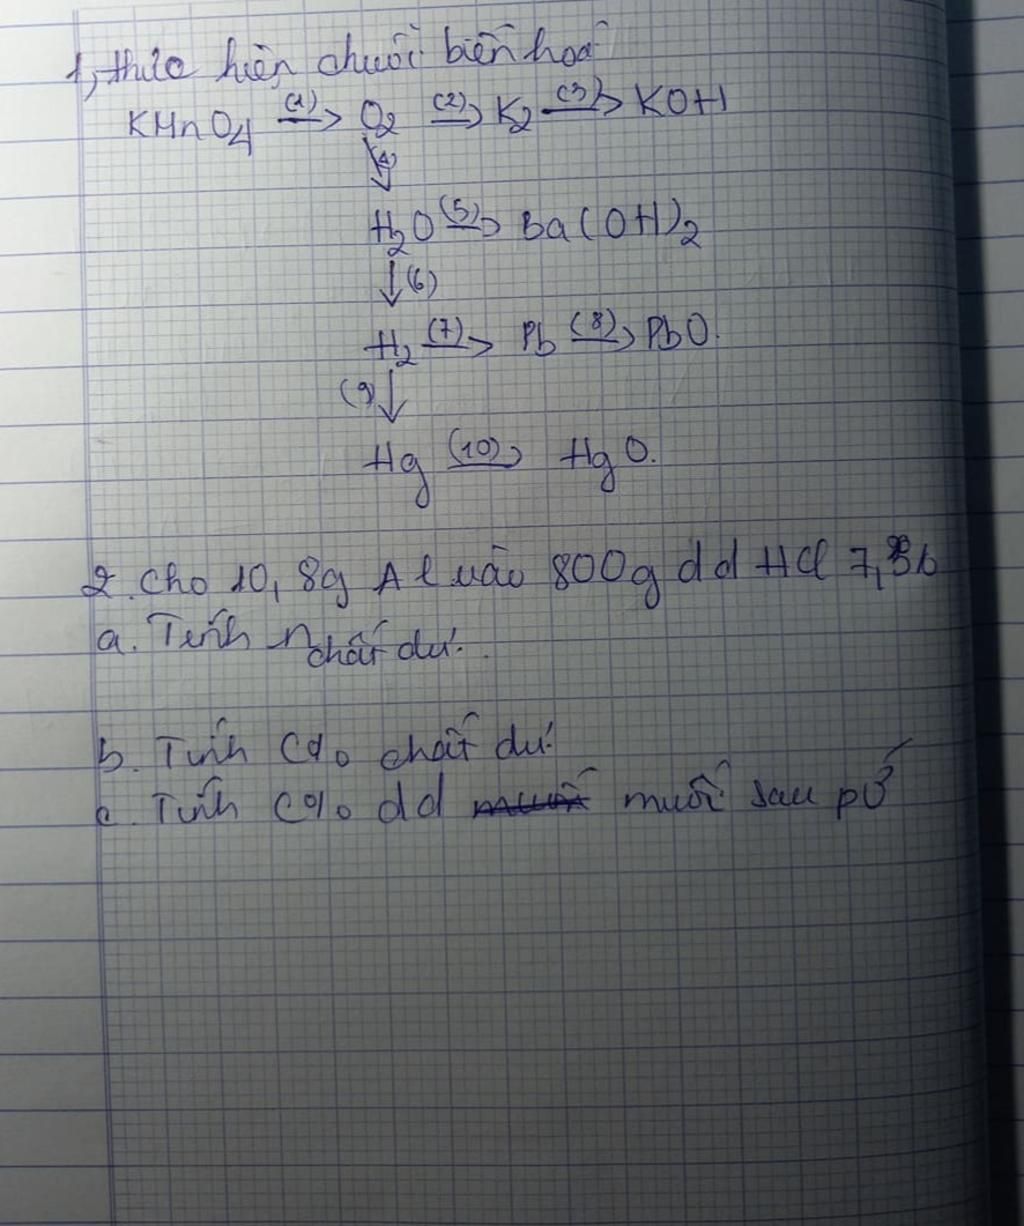 1, thực hiện chuỗi biến hoá
KMnO4 (1)→ O2 (2)→ K2 (3)→ KOH
↓(4)
H2O (5)→ Ba(OH)2
↓(6)
H2 (7)→ Pb (8)→ PbO.
(9)↓
Hg (10)→ HgO.
2. Cho 10,8g Al vào 800g dd HCl 7,3%
a. Tính n chất dư.
b. Tính C% chất dư.
c. Tính C% dd muối sau pứ